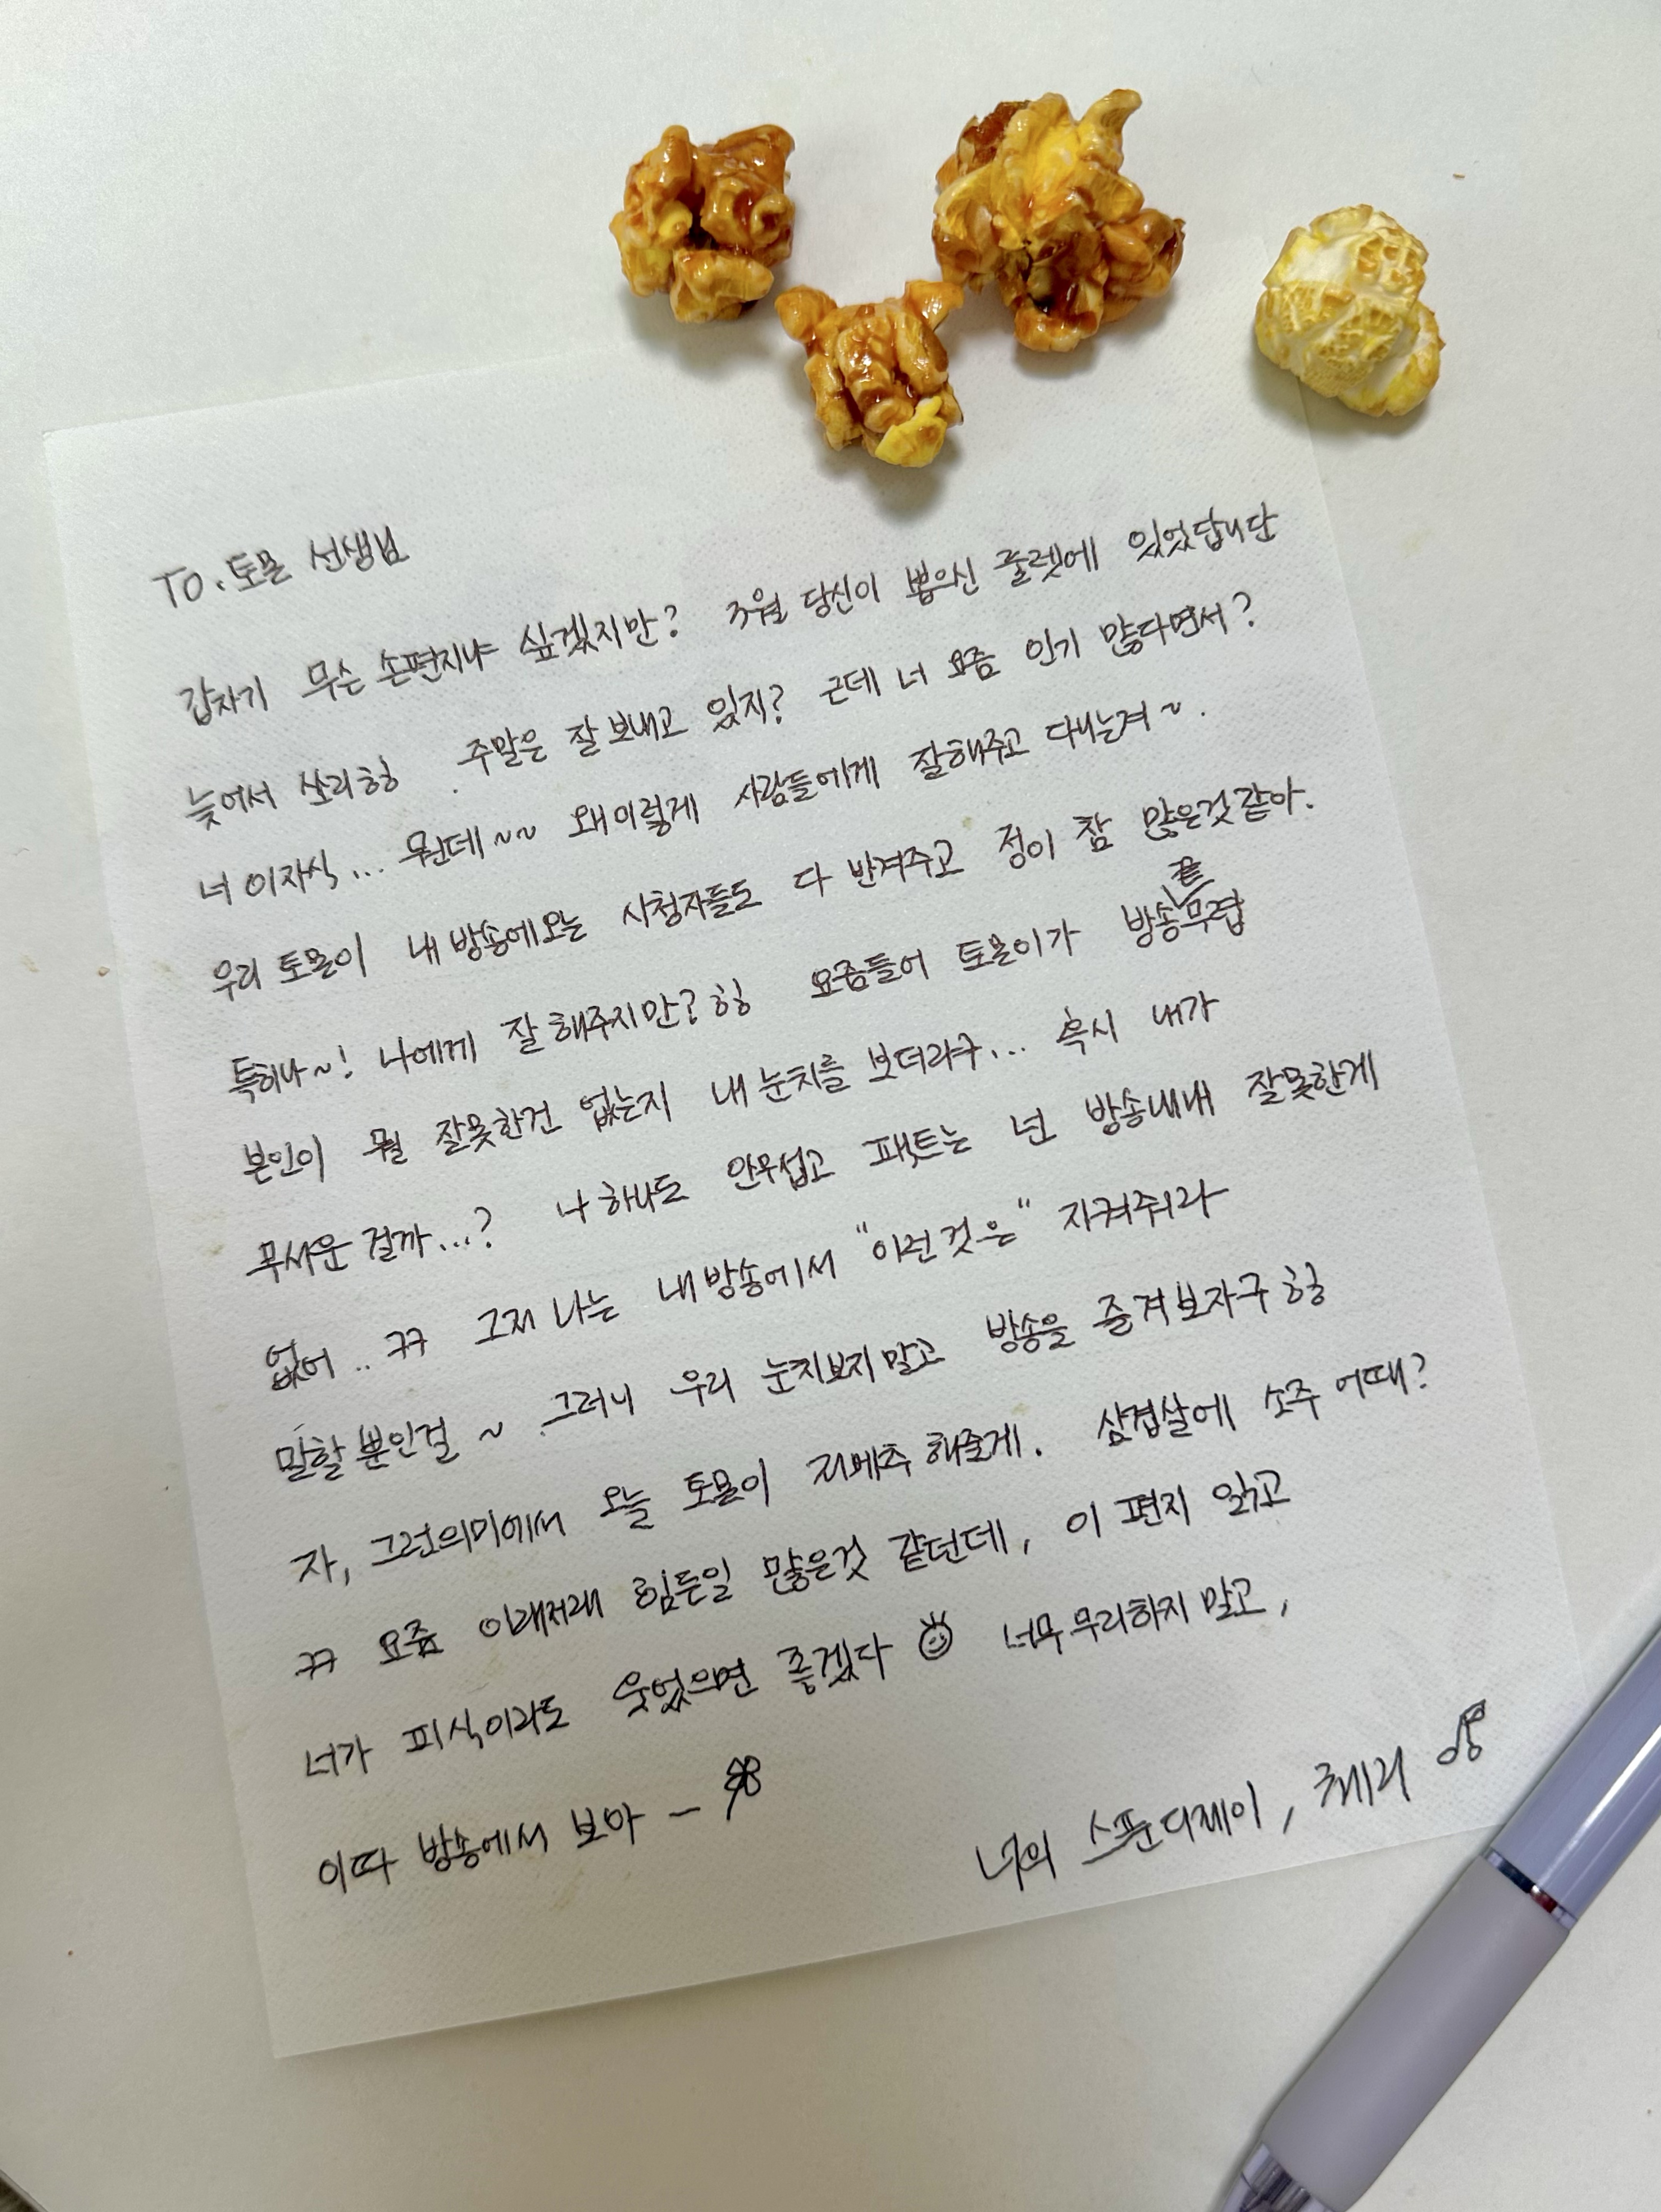 TO. 토몰 선생님
갑자기 무슨 손편지냐 싶겠지만? 3월 당신이 뽑으신 룰렛에 있었답니단
늦어서 쏘리힝 . 주말은 잘 보내고 있지? 근데 너 요즘 인기 많다면서?
너 이자식... 뭔데~~ 왜이렇게 사람들에게 잘해주고 다니는겨~.
우리 토몰이 내 방송에오는 시청자들도 다 반겨주고 정이 참 많은것같아.
특히나~! 나에게 잘해주지만? 힝 요즘들어 토몰이가 방송끝무렵
본인이 뭘 잘못한건 없는지 내 눈치를 보더라구... 혹시 내가
무서운 걸까...? 나 하나도 안무섭고 팩트는 넌 방송내내 잘못한게
없어.. ㅋㅋ 그저 나는 내 방송에서 "이런것은" 지켜줘라
말할 뿐인걸 ~ 그러니 우리 눈치보지말고 방송을 즐겨보자구 힝
자, 그런의미에서 오늘 토몰이 저메추 해줄게. 삼겹살에 소주 어때?
ㅋㅋ 요즘 이래저래 힘든일 많은것 같던데, 이 편지 읽고
너가 피식이라도 웃었으면 좋겠다 너무 무리하지 말고,
이따 방송에서 보아 –
너의 스푼디제이, 췌리